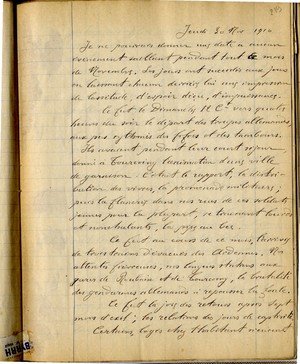 Jeudi 30 Nov. 1914
Je ne pourrais donner une date à aucun
événement saillant pendant tout le mois
de Novembre. Les jours ont succédé aux jours
en laissant chacun derrière une impression
de lassitude, d'espoir déçu, d'impuissance.
Ce fut le Dimanche 11 Ct vers
heures du soir le départ des troupes allemandes,
aux pas rythmés des fifres et des tambours.
Ils avaient pendant leur court séjour
donné à Tourcoing l'animation d'une ville
de garnison. C'était le rapport, la distri-
bution des vivres, la promenade militaire,
puis la flânerie dans nos rues de ces soldats
jeunes pour la plupart, se trouvant
et nonchalants, la pipe au bec.
Ce fut au cours de ce mois,
de tous d'évacués des Ardennes. Nos
attentes fiévreuses, nos longues stations aux
gares de Roubaix et de Tourcoing, la brutalité
des gendarmes allemands à repousser la foule.
Ce fut la joie des retours après sept
mois d'exil; les relations de jours de captivité.
Certains logés chez l'habitant